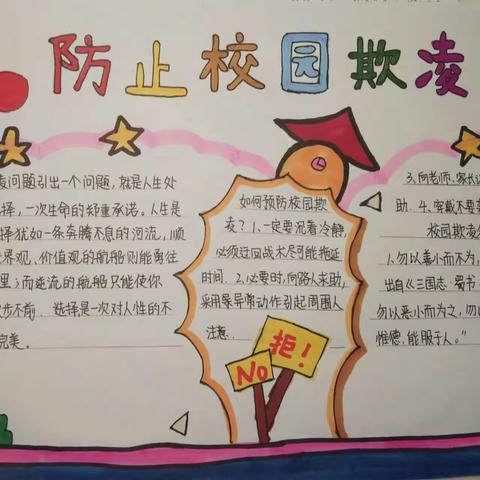 防止校园欺凌
问题引出一个问题，就是人生处
择，一次生命的郑重承诺。人生是
择犹如一条奔腾不息的河流，顺
世界观、价值观的船舶则能勇往
里；而逆流的船舶只能使你
步不前。选择是一次对人性的不
完美。
如何预防校园欺
凌？1、一定要沉着冷静，
必须迂回战术尽可能拖延
时间 2、必要时，向路人求助，
采用异常动作引起周围人
注意
NO
拒！
3、向老师、家长
助. 4、穿戴不要
校园欺凌
勿以恶小而为，
出自《三国志·蜀书
勿以恶小而为之，勿以
惟德，能服于人。”